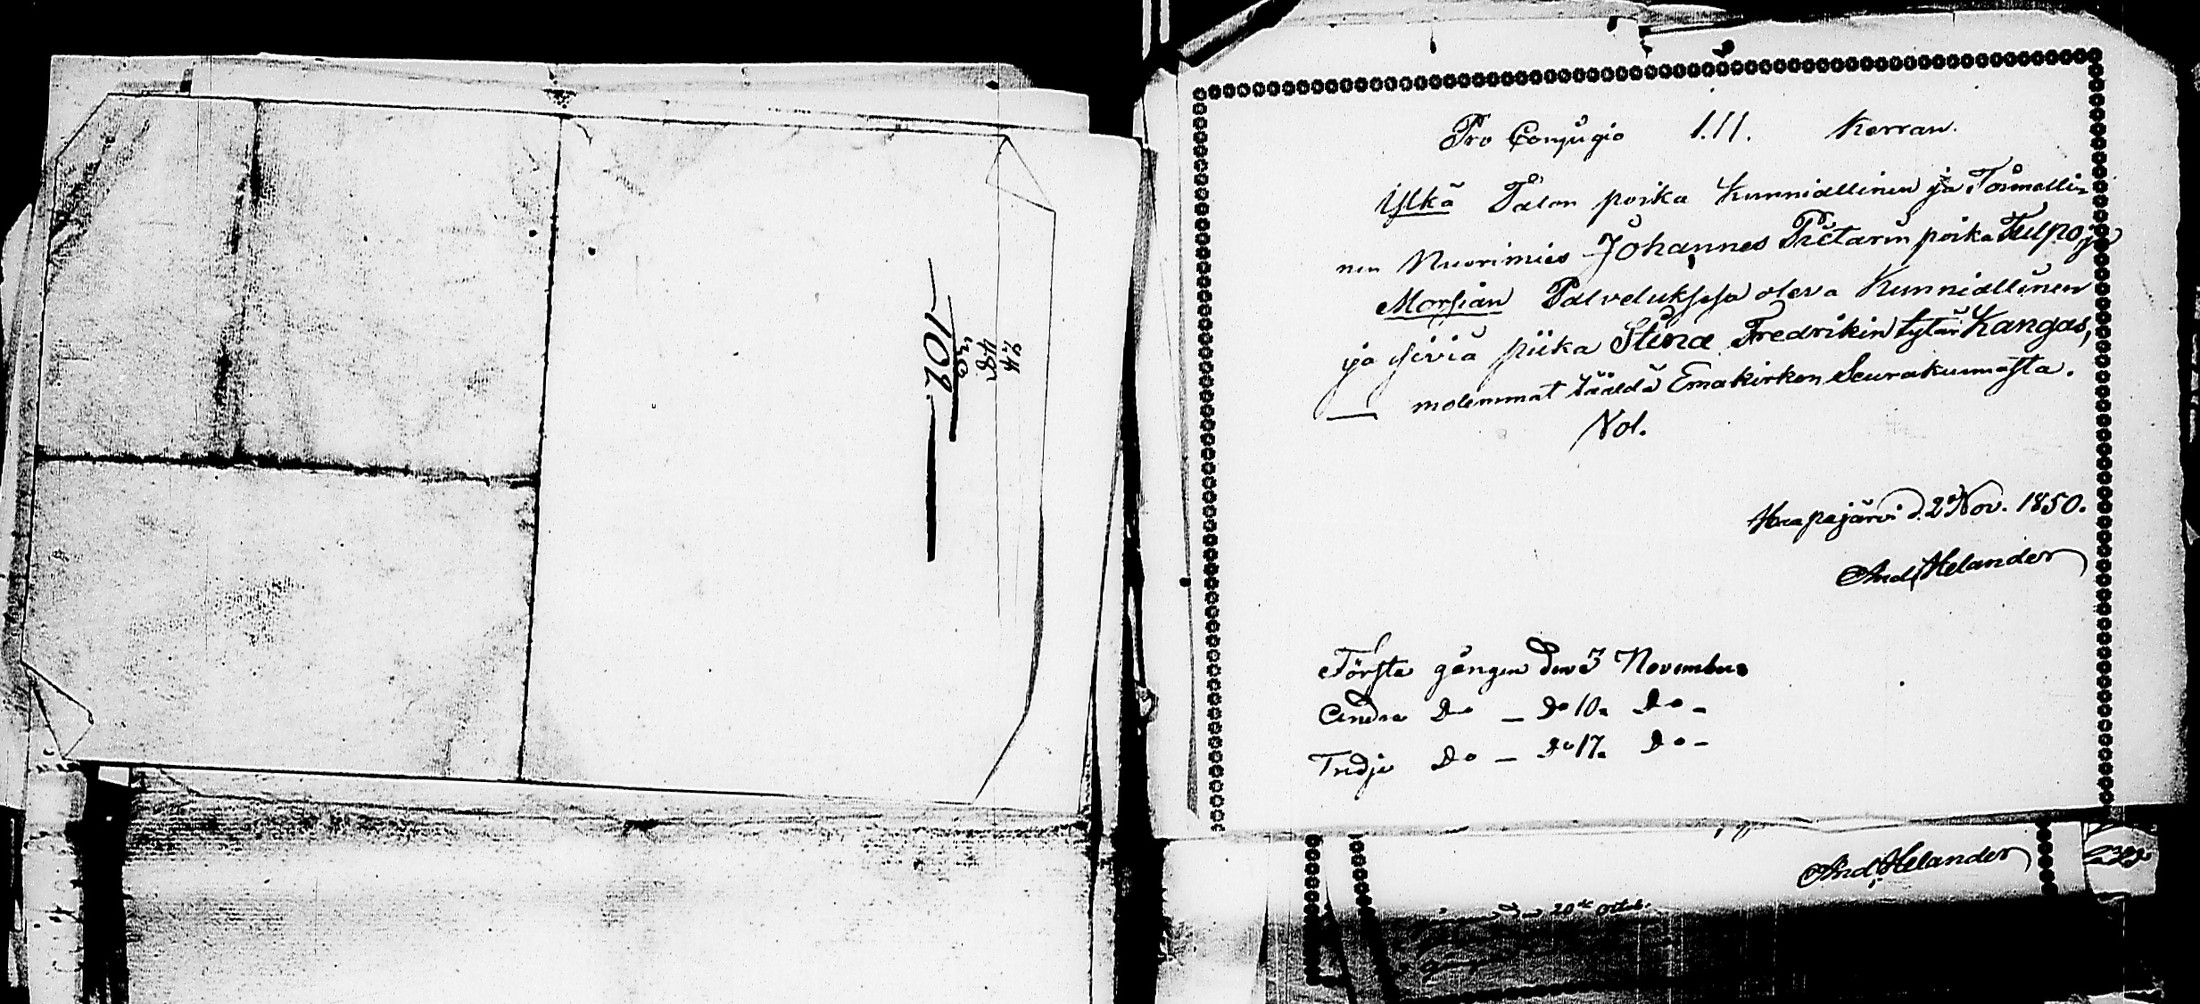 24
48
30
102.
Pro Conjugio 1. 11. Kerran.
Ylkä Talon poika Kunniallinen ja Toimelli-
nen Nuorimies Johannes Pietarin poika Kulpo ja
Morsian Palveluksesa oleva Kunniallinen
ja siviä piika Stina Fredrikin tytär Kangas,
molemmat tääldä Emäkirkon Seurakunnasta.
Nol.
Haapajärvi d. 2 Nov. 1850.
And. Helander
Första gången den 3 November
Andra Do – Do 10. Do –
Tredje Do – Do 17. Do –
And. Helander
20de Octob.